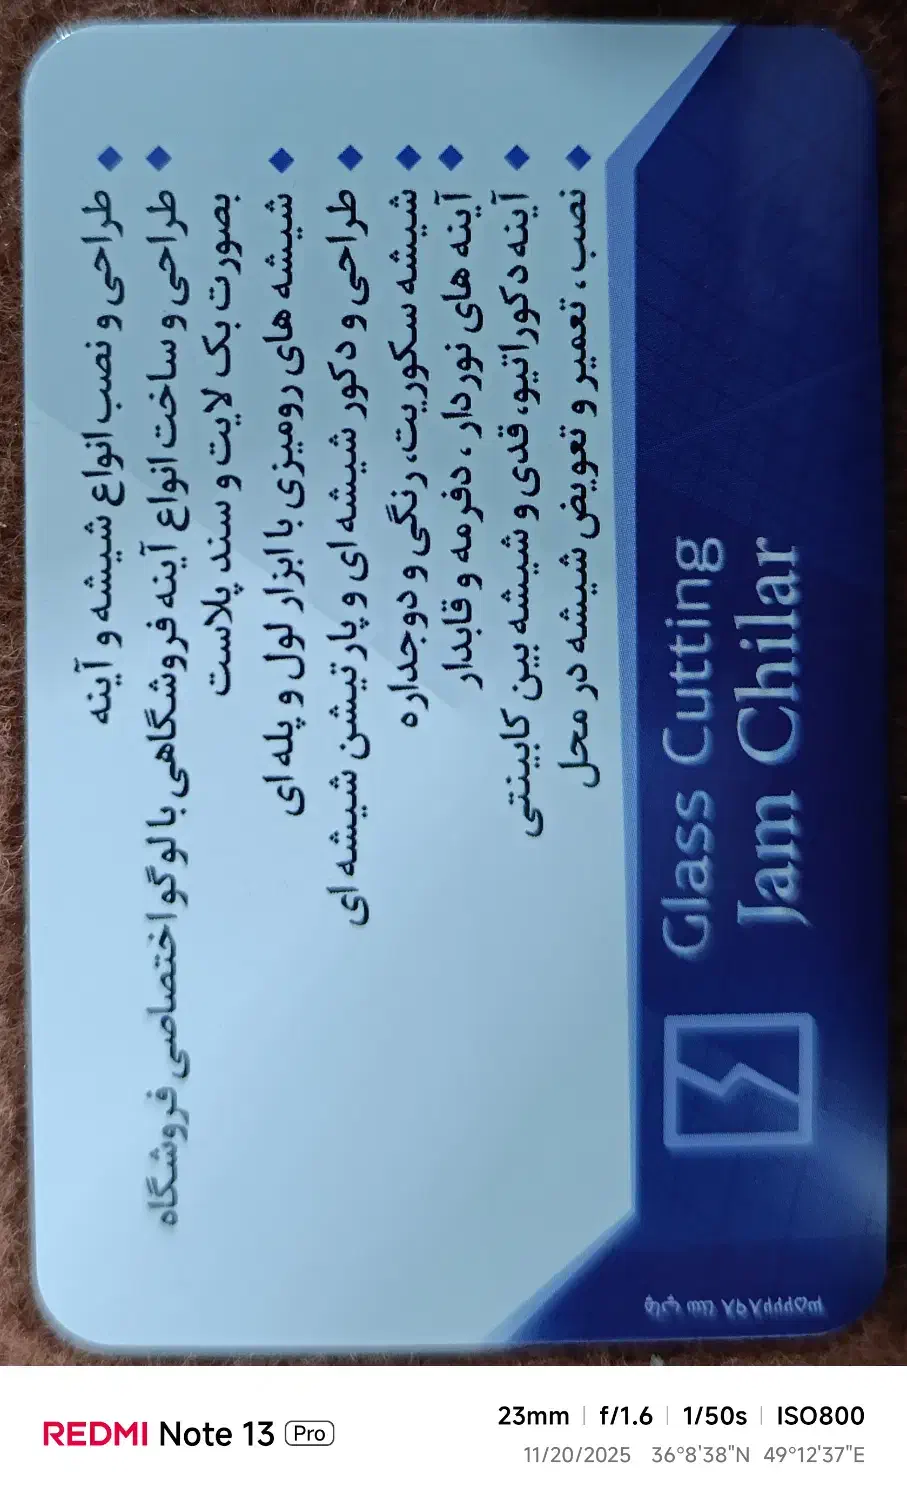 طراحی و نصب انواع شیشه و آینه
طراحی و ساخت انواع آینه فروشگاهی با لوگو اختصاصی فروشگاه
بصورت بک لایت و سند پلاست
شیشه های رومیزی با ابزار لول و پله ای
طراحی و دکور شیشه ای و پارتیشن شیشه ای
شیشه سکوریت، رنگی و دوجداره
آینه های نوردار ، دفرمه و قابدار
آینه دکوراتیو، قدی و شیشه بین کابینتی
نصب ، تعمیر و تعویض شیشه در محل
Glass Cutting
Jam Chilar
REDMI Note 13 Pro
23mm | f/1.6 | 1/50s | ISO800
11/20/2025 36°8'38"N 49°12'37"E